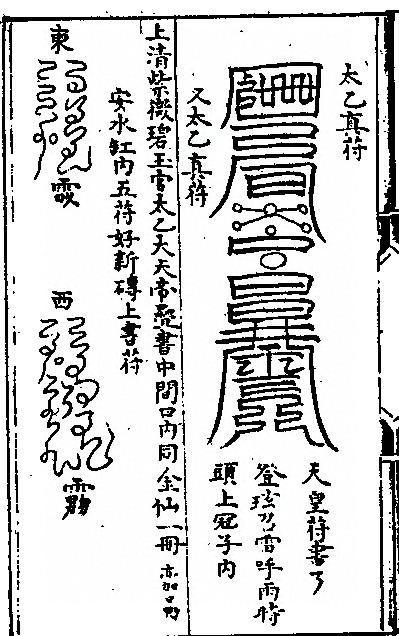 太乙真符
天皇符書了
登壇召雷呼雨将
頭上冠子内
又太乙真符
上清紫微碧玉宫太乙大天帝聖書中間口内同金仙一冊
安水缸内五符好新磚上書符
東
西